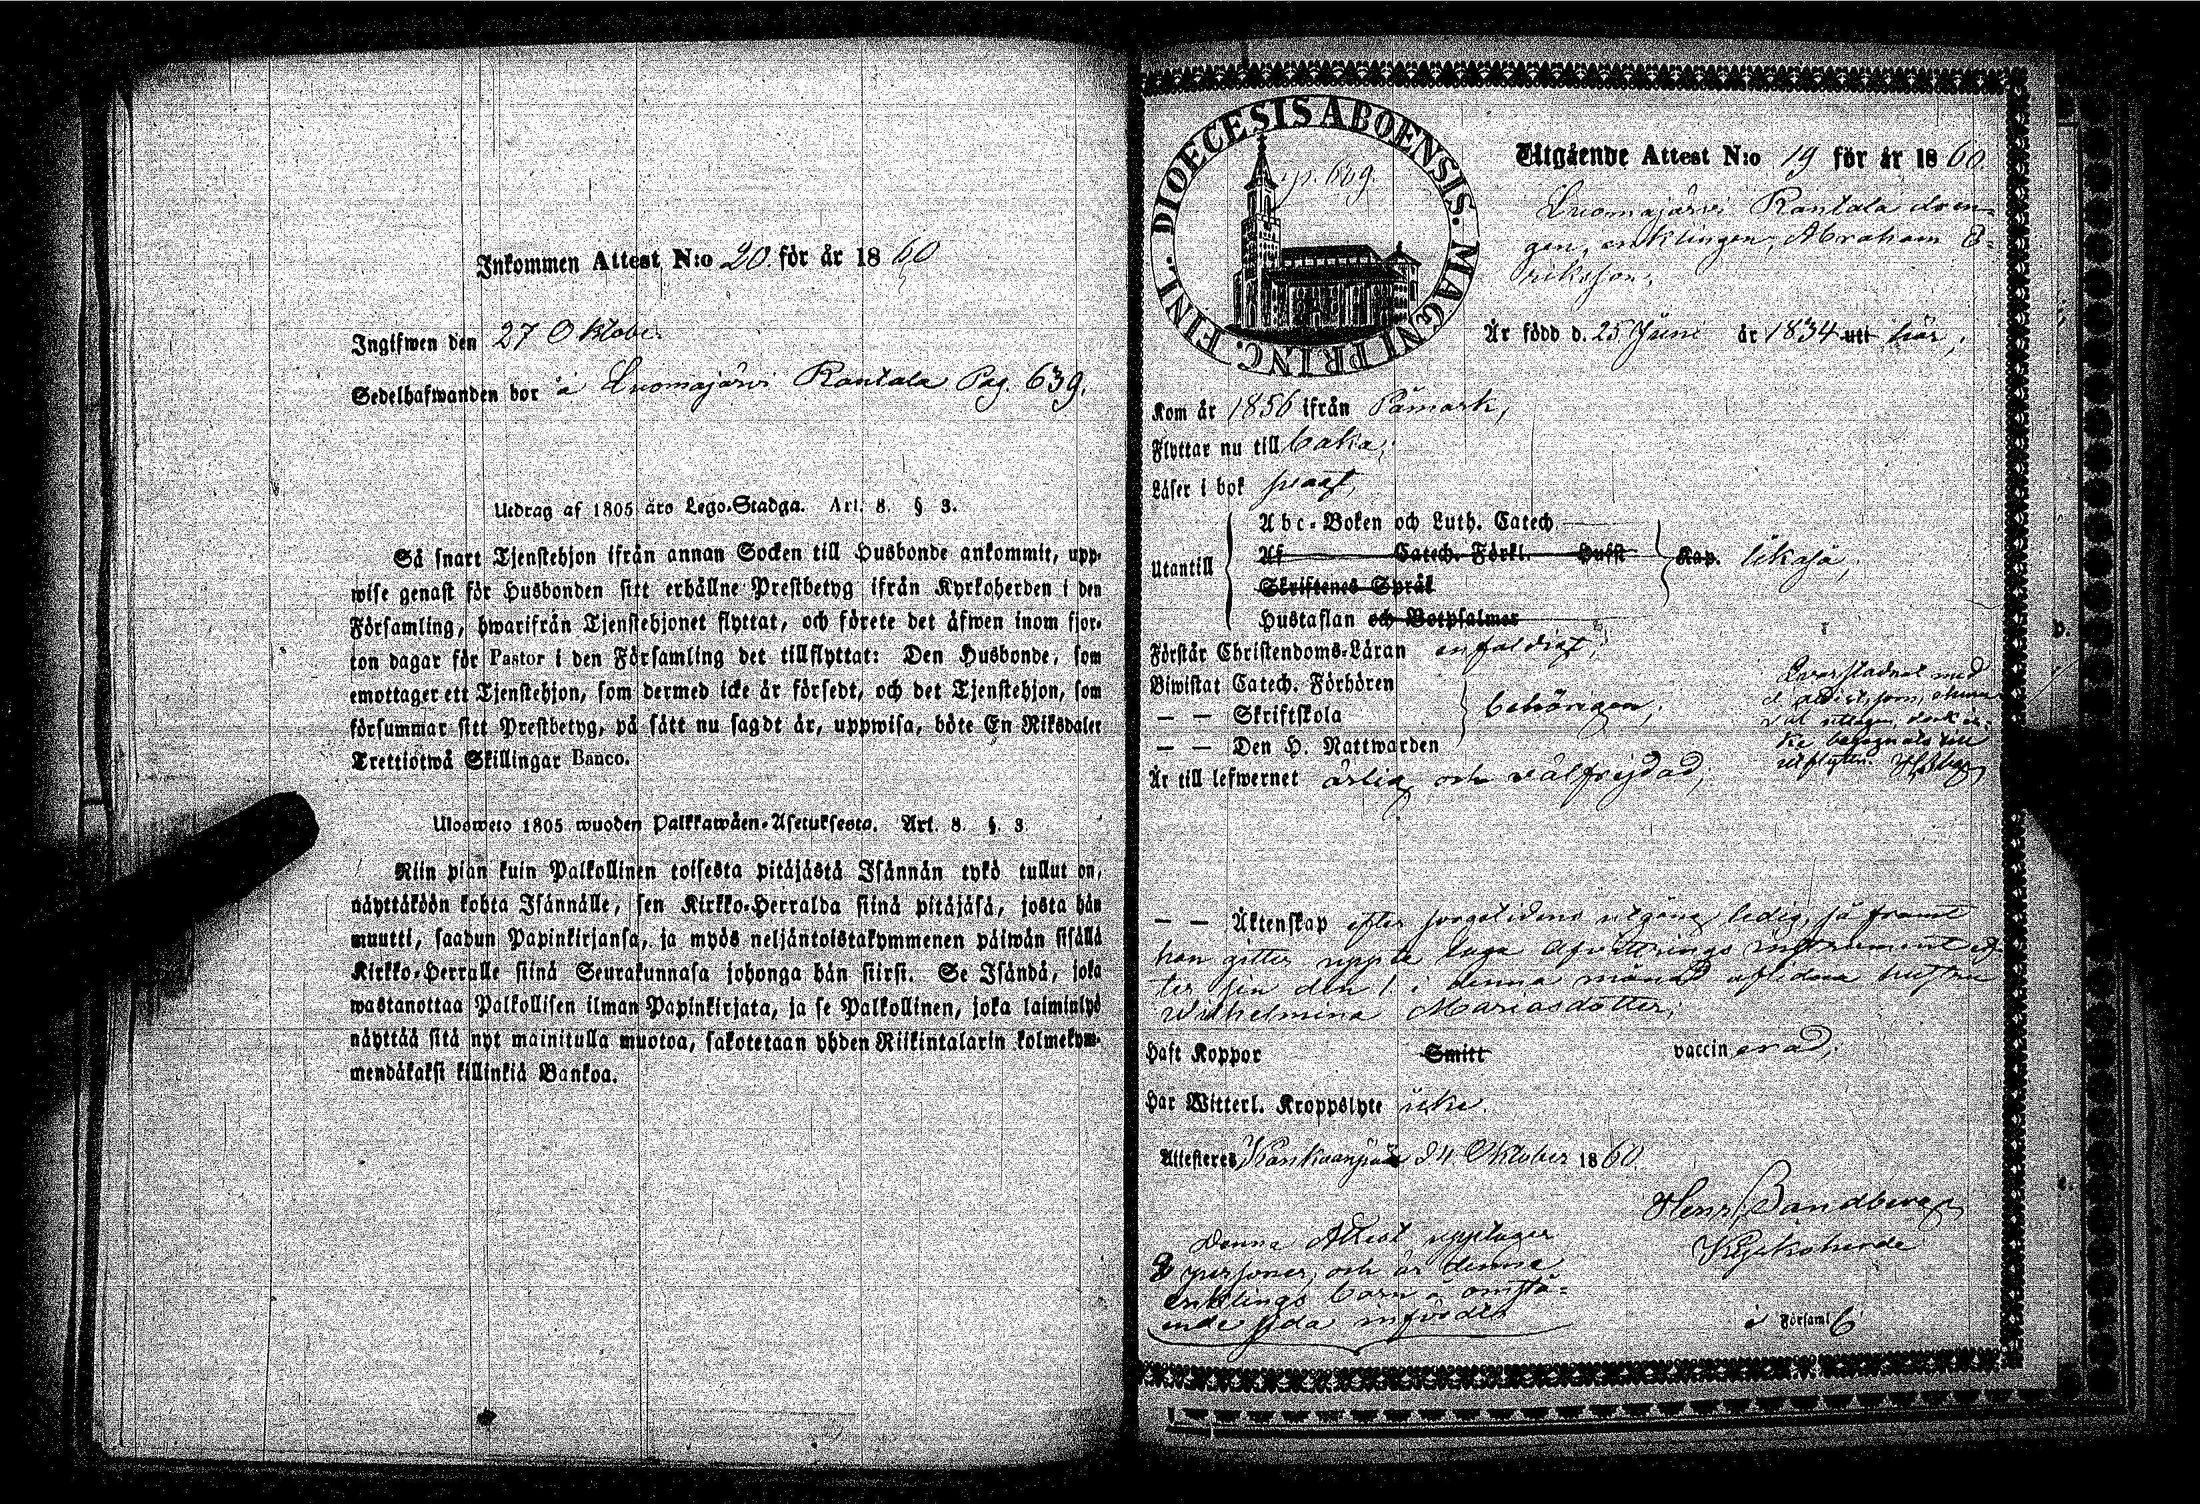 Inkommen Attest N:o 20. för år 1860
Ingifwen den 27 Oktober
Sedelhafwanden bor å Luomajärvi Rantala Pag. 639.
Utdrag af 1805 års Lego-Stadga. Art. 8. § 3.
Så snart Tjenstehjon ifrån annan Socken till Husbonde ankommit, upp-
wise genast för Husbonden sitt erhållne Prestbetyg ifrån Kyrkoherden i den
Församling, hwarifrån Tjenstehjonet flyttat, och förete det äfwen inom fjor-
ton dagar för Pastor i den Församling det tillflyttat: Den Husbonde, som
emottager ett Tjenstehjon, som dermed icke är försedt, och det Tjenstehjon, som
försummar sitt Prestbetyg, på sätt nu sagdt är, uppwisa, böte En Riksdaler
Trettiotwå Skillingar Banco.
Ulosweto 1805 wuoden Palkkawäen-Asetuksesta. Art. 8. §. 3
Niin pian kuin Palkollinen toisesta pitäjästä Isännän tykö tullut on,
näyttäköön kohta Isännälle, sen Kirkko-Herralda siinä pitäjäsä, josta hän
muutti, saadun Papinkirjansa, ja myös neljäntoistakymmenen päiwän sisällä
Kirkko-Herralle siinä Seurakunnasa johonga hän siirsi. Se Isändä, joka
wastanottaa Palkollisen ilman Papinkirjata, ja se Palkollinen, joka laiminlyö
näyttää sitä nyt mainitulla muotoa, sakotetaan yhden Riikintalarin kolmekym-
mendäkaksi killinkiä Bankoa.
DIOECESIS ABOENSIS. MAGNI PRINC. FINL.
p. 639.
Utgående Attest N:o 19 för år 1860.
Luomajärvi Rantala dren-
gen, enklingen, Abraham E-
riksson,
Är född d. 25 Juni år 1834 uti här,
Kom år 1856 ifrån Påmark,
Flyttar nu till
Läser i bok swagt,
Utantill
Abc-Boken och Luth. Catech.
Af Catech. Förkl. Hufst
Skriftenes Språk
Hustaflan och Botpsalmer
Kap. likaså,
Förstår Christendoms-Läran enfaldigt,
Biwistat Catech. Förhören
— — Skriftskola
— — Den H. Nattwarden
behörigen,
Är till lefwernet ärlig och välfrejdad,
— — Äktenskap efter sorgetidens utgång ledig, så framt
han gitter uppte laga afvittrings instrument ef-
ter sin den 1 i denna månad aflidna hustru
Wilhelmina Mariasdotter,
Haft Koppor Smitt vaccinerad,
Har Witterl. Kroppslyte icke.
Attesteres Kankaanpää d 4 Oktober 1860.
Henr. Sandberg
Kyrkoherde
i Församl
Denna Attest upptager
3 personer, och är denne
enklings barn å omstå-
ende sida införde